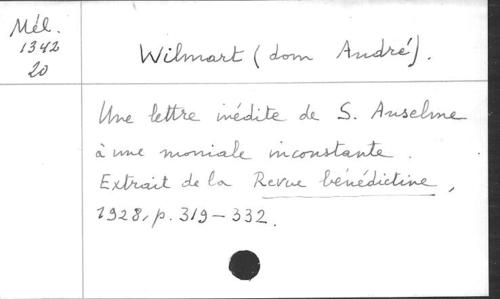 Mél.
1342
20
Wilmart (dom André).
Une lettre inédite de S. Anselme
à une moniale inconstante.
Extrait de la Revue bénédictine,
1928, p. 319-332.